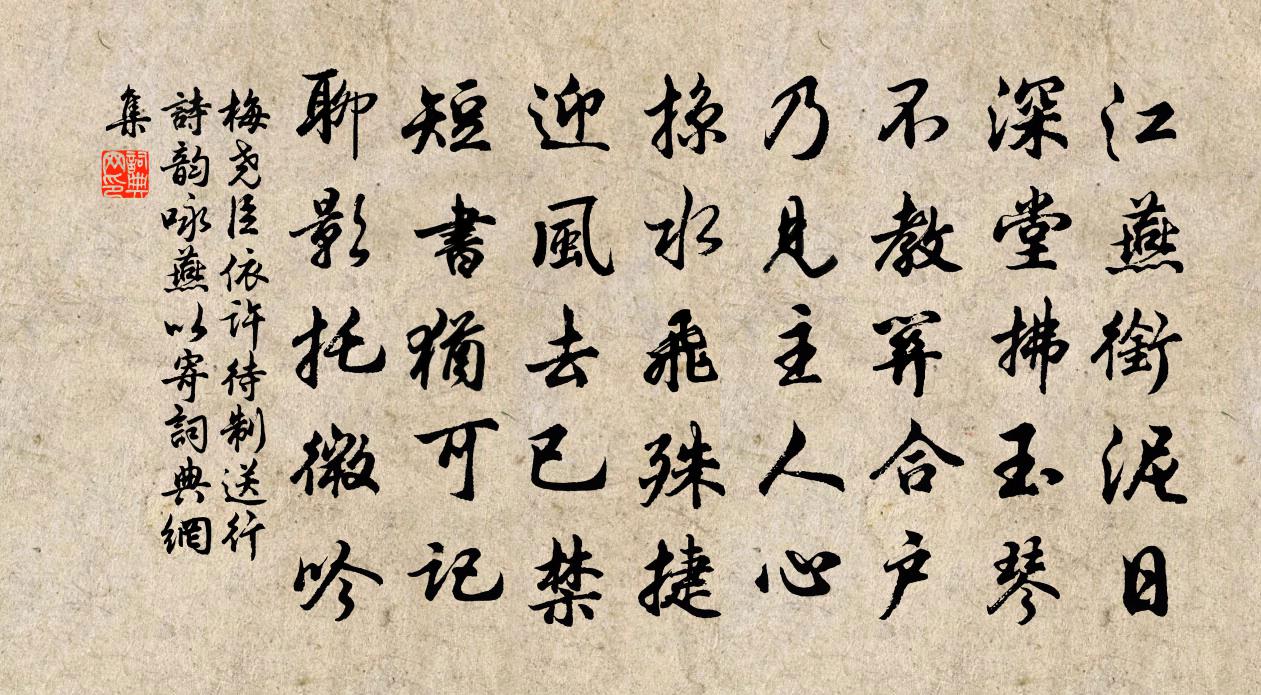 江燕銜泥日
深堂拂玉琴
不教開合户
乃見主人心
掠水飛殊捷
迎風去已禁
短書猶可記
聊影托微吟
梅堯臣依許待制送行
詩韵咏燕以寄詞典網
集
詞典
网印